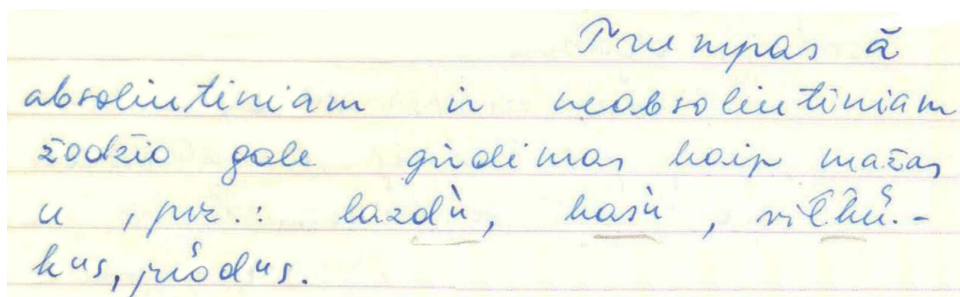 Trumpas ā
absoliutiniam ir neabsoliutiniam
žodžio gale girdimas kaip mažas
u , pvz.: lazdᵘ̀, kasᵘ̀,
kᵘs, júodᵘs.